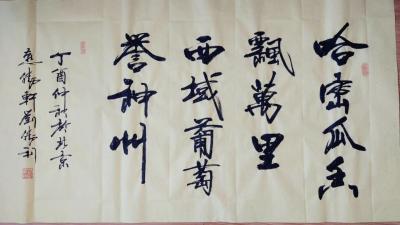 哈密瓜香
飄萬里
西域葡萄
譽神州
丁酉仲秋於北京
劉俊利